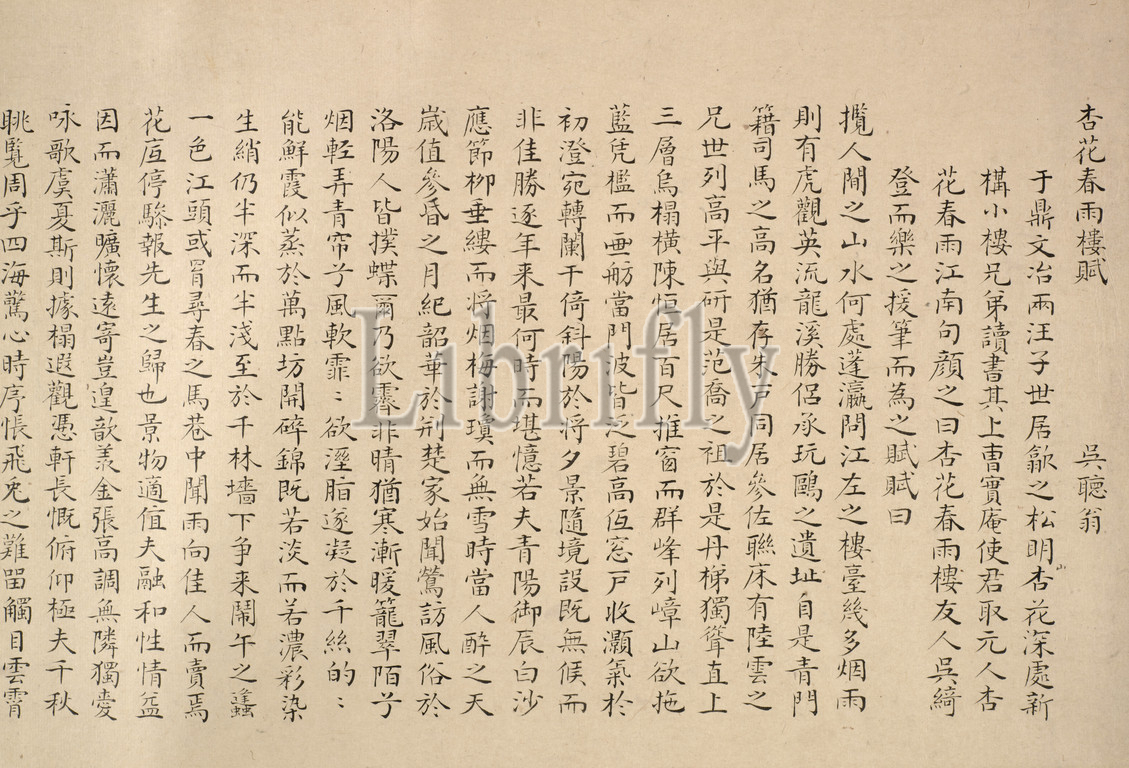 杏花春雨樓賦 吳聽翁
于鼎文冶兩汪子世居歙之松明杏花深處新
構小樓兄弟讀書其上曹實庵使君取元人杏
花春雨江南句顏之曰杏花春雨樓友人吳綺
登而樂之援筆而為之賦賦曰
攬人間之山水何處蓬瀛問江左之樓臺幾多烟雨
則有虎觀英流龍溪勝侶承玩鷗之遺址自是青門
籍司馬之高名猶存朱戶同居參佐聯床有陸雲之
兄世列高平與研是范喬之祖於是丹梯獨聳直上
三層烏榻橫陳恒居百尺推窗而群峰列嶂山欲拖
藍凭檻而畫舫當門波皆泛碧高低窓戶收灝氣於
初澄宛轉闌干倚斜陽於將夕景隨境設既無候而
非佳勝逐年来最何時而堪憶若夫青陽御辰白沙
應節柳垂縷而将烟梅謝瓊而無雪時當人醉之天
歲值參昏之月紀韶華於荆楚家始聞鶯訪風俗於
洛陽人皆撲蝶爾乃欲霽非晴猶寒漸暖籠翠陌兮
烟輕弄青帘兮風軟霏〻欲溼脂遂凝於千絲的〻
能鮮霞似蒸於萬點坊開碎錦既若淡而若濃彩染
生綃仍半深而半淺至於千林墻下争来鬧午之蠭
一色江頭或罥尋春之馬巷中聞雨向佳人而賣焉
花店停驂報先生之歸也景物適值夫融和性情益
因而瀟灑曠懷遠寄豈遑歆羨金張高調無隣獨愛
咏歌虞夏斯則據榻遐觀憑軒長慨俯仰極夫千秋
眺覽周乎四海驚心時序悵飛兎之難留觸目雲霄
Librifly